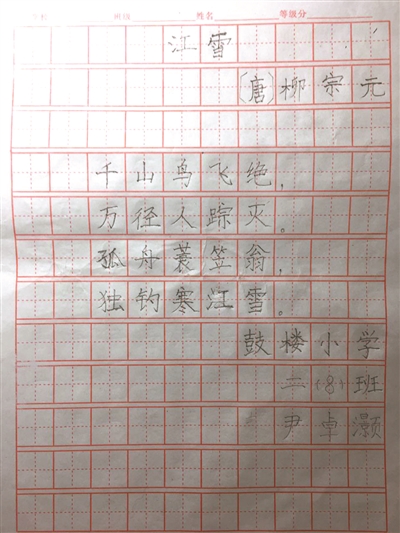 班级 姓名 等级分
江雪
(唐)柳宗元
千山鸟飞绝,
万径人踪灭。
孤舟蓑笠翁,
独钓寒江雪。
鼓楼小学
二(8)班
尹卓灏